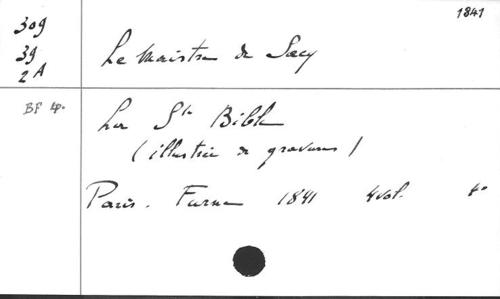 1841
309
39
2A
Le Maistre de Sacy
BF 4°.
La Ste Bible
(illustrée de gravures)
Paris. Furne 1841 4 vol. 4°